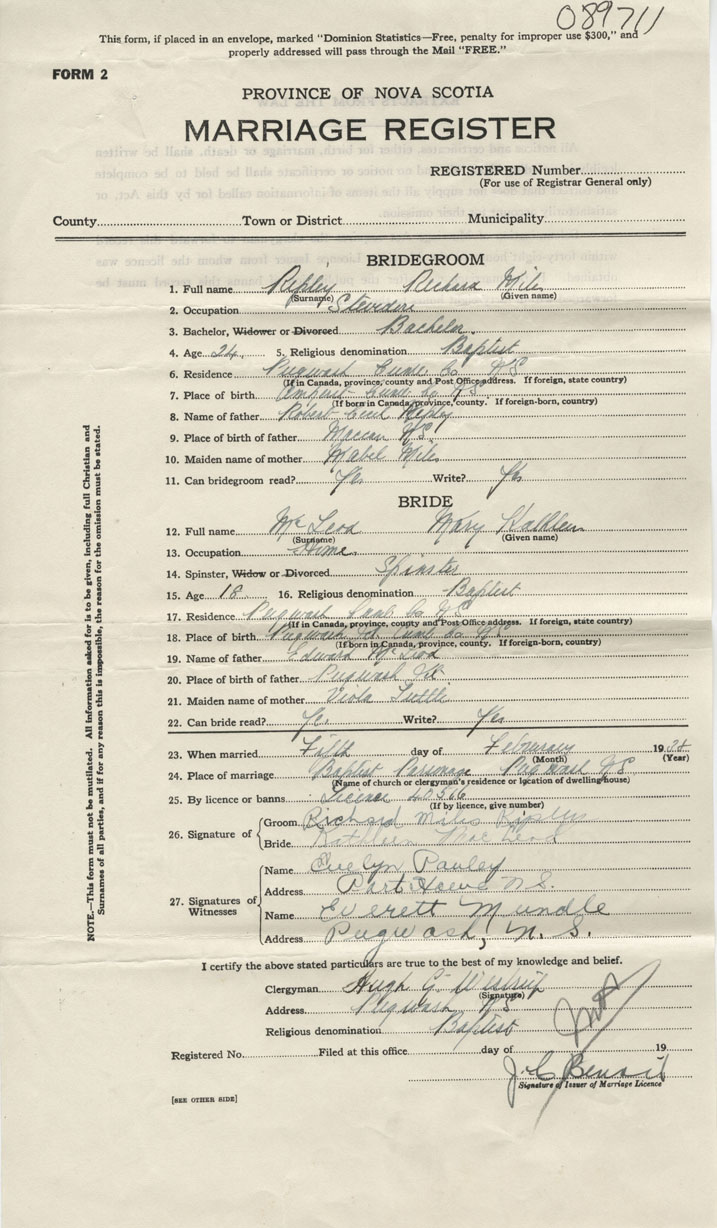 089711
This form, if placed in an envelope, marked "Dominion Statistics—Free, penalty for improper use $300," and
properly addressed will pass through the Mail "FREE."
FORM 2
PROVINCE OF NOVA SCOTIA
MARRIAGE REGISTER
REGISTERED Number
(For use of Registrar General only)
County Town or District Municipality
BRIDEGROOM
1. Full name Ripley Richard Miles
(Surname) (Given name)
2. Occupation Stevedore
3. Bachelor, Widower or Divorced Bachelor.
4. Age 24. 5. Religious denomination Baptist
6. Residence Pugwash Cumb Co NS
(If in Canada, province, county and Post Office address. If foreign, state country)
7. Place of birth Amherst Cumb Co NS
(If born in Canada, province, county. If foreign-born, country)
8. Name of father Robert Cecil Ripley
9. Place of birth of father Maccan NS.
10. Maiden name of mother Mabel Miles
11. Can bridegroom read? Yes Write? Yes
BRIDE
12. Full name McLeod Mary Kathleen
(Surname) (Given name)
13. Occupation Home
14. Spinster, Widow or Divorced Spinster
15. Age 18 16. Religious denomination Baptist
17. Residence Pugwash Cumb Co NS
(If in Canada, province, county and Post Office address. If foreign, state country)
18. Place of birth Pugwash Cumb Co NS
(If born in Canada, province, county. If foreign-born, country)
19. Name of father Edward McLeod
20. Place of birth of father Pugwash
21. Maiden name of mother Viola Tuttle
22. Can bride read? Yes Write? Yes
23. When married Fifth day of February 19
(Month) (Year)
24. Place of marriage Baptist Parsonage Pugwash NS
(Name of church or clergyman's residence or location of dwelling house)
25. By licence or banns Licence 40566
(If by licence, give number)
26. Signature of
Groom Richard Miles Ripley
Bride Kathleen MacLeod
27. Signatures of Witnesses
Name Evelyn Pauley
Address Port Howe N.S.
Name Everett Mundle
Address Pugwash, N.S.
I certify the above stated particulars are true to the best of my knowledge and belief.
Clergyman Hugh G.
(Signature)
Address Pugwash NS
Religious denomination Baptist
Registered No. Filed at this office day of 19
J. C. Benoit
Signature of Issuer of Marriage Licence
[SEE OTHER SIDE]
NOTE.—This form must not be mutilated. All information asked for is to be given, including full Christian and
Surnames of all parties, and if for any reason this is impossible, the reason for the omission must be stated.